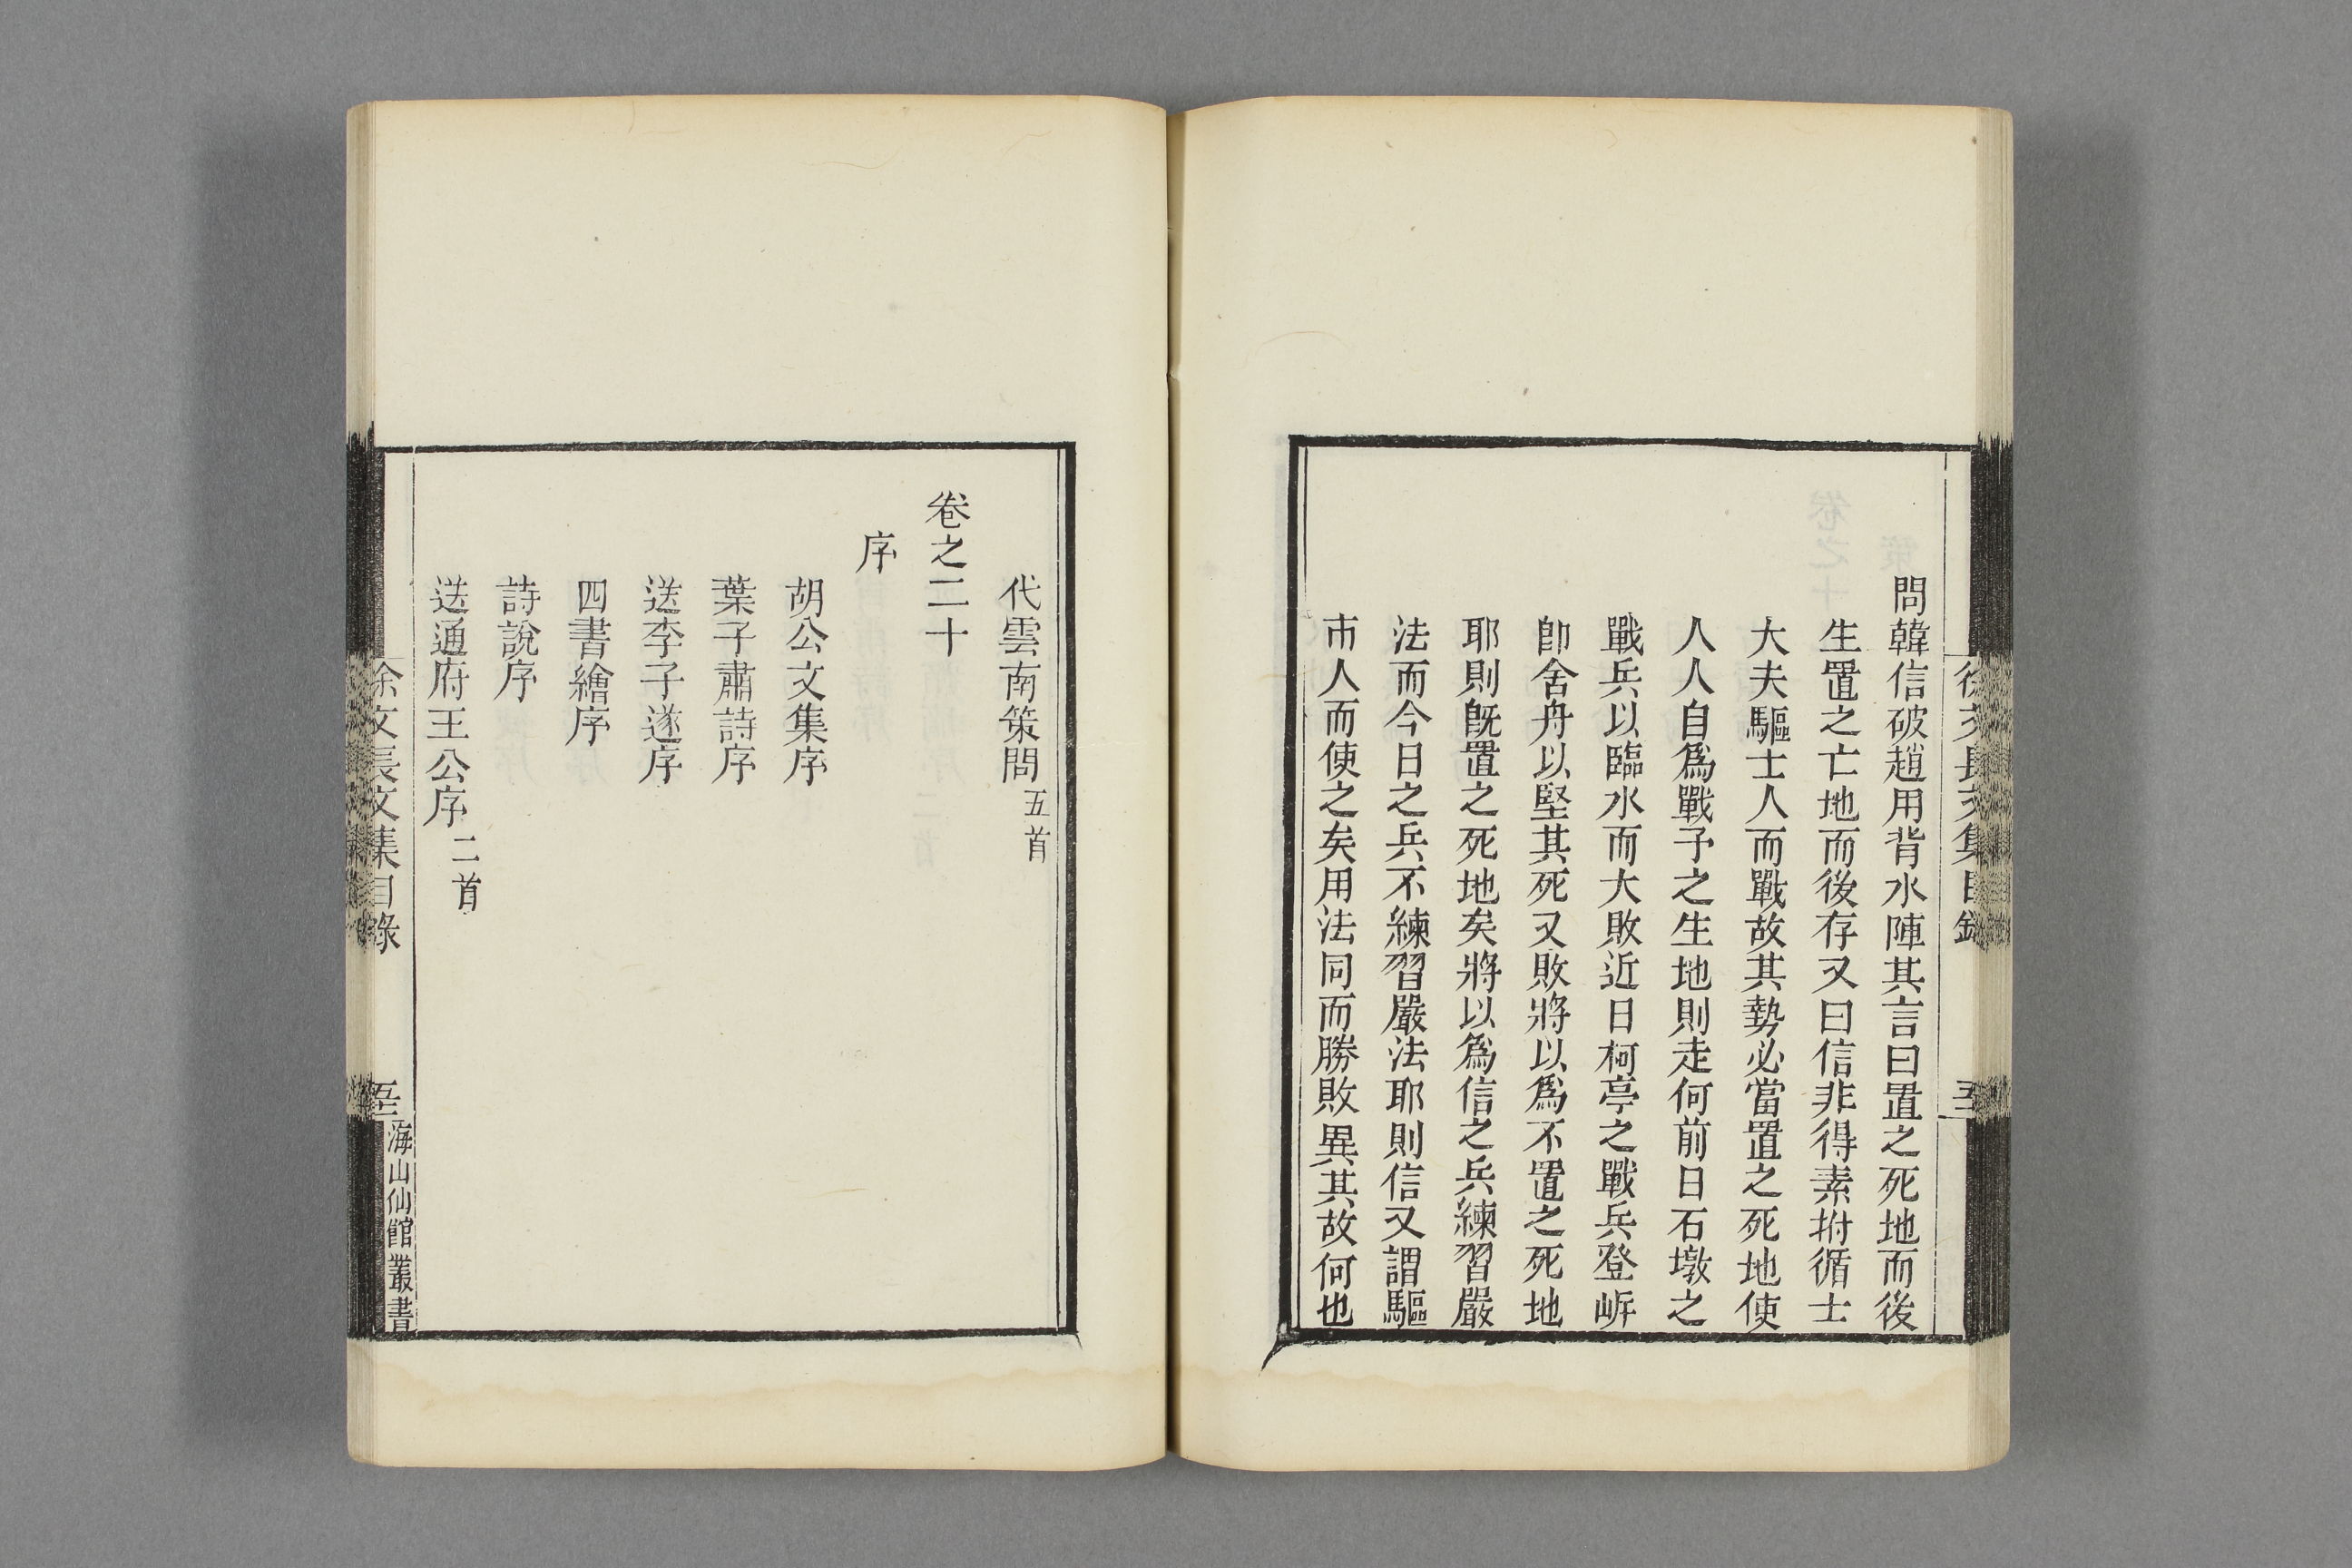 問韓信破趙用背水陣其言曰置之死地而後
生置之亡地而後存又曰信非得素拊循士
大夫驅士人而戰故其勢必當置之死地使
人人自爲戰予之生地則走何前日石墩之
戰兵以臨水而大敗近日柯亭之戰兵登岸
卽舍舟以堅其死又敗將以爲不置之死地
耶則旣置之死地矣將以爲信之兵練習嚴
法而今日之兵不練習嚴法耶則信又謂驅
市人而使之矣用法同而勝敗異其故何也
代雲南策問五首
卷之二十
序
胡公文集序
葉子肅詩序
送李子遂序
四書繪序
詩說序
送通府王公序二首
徐文長文集目錄
海山仙館叢書